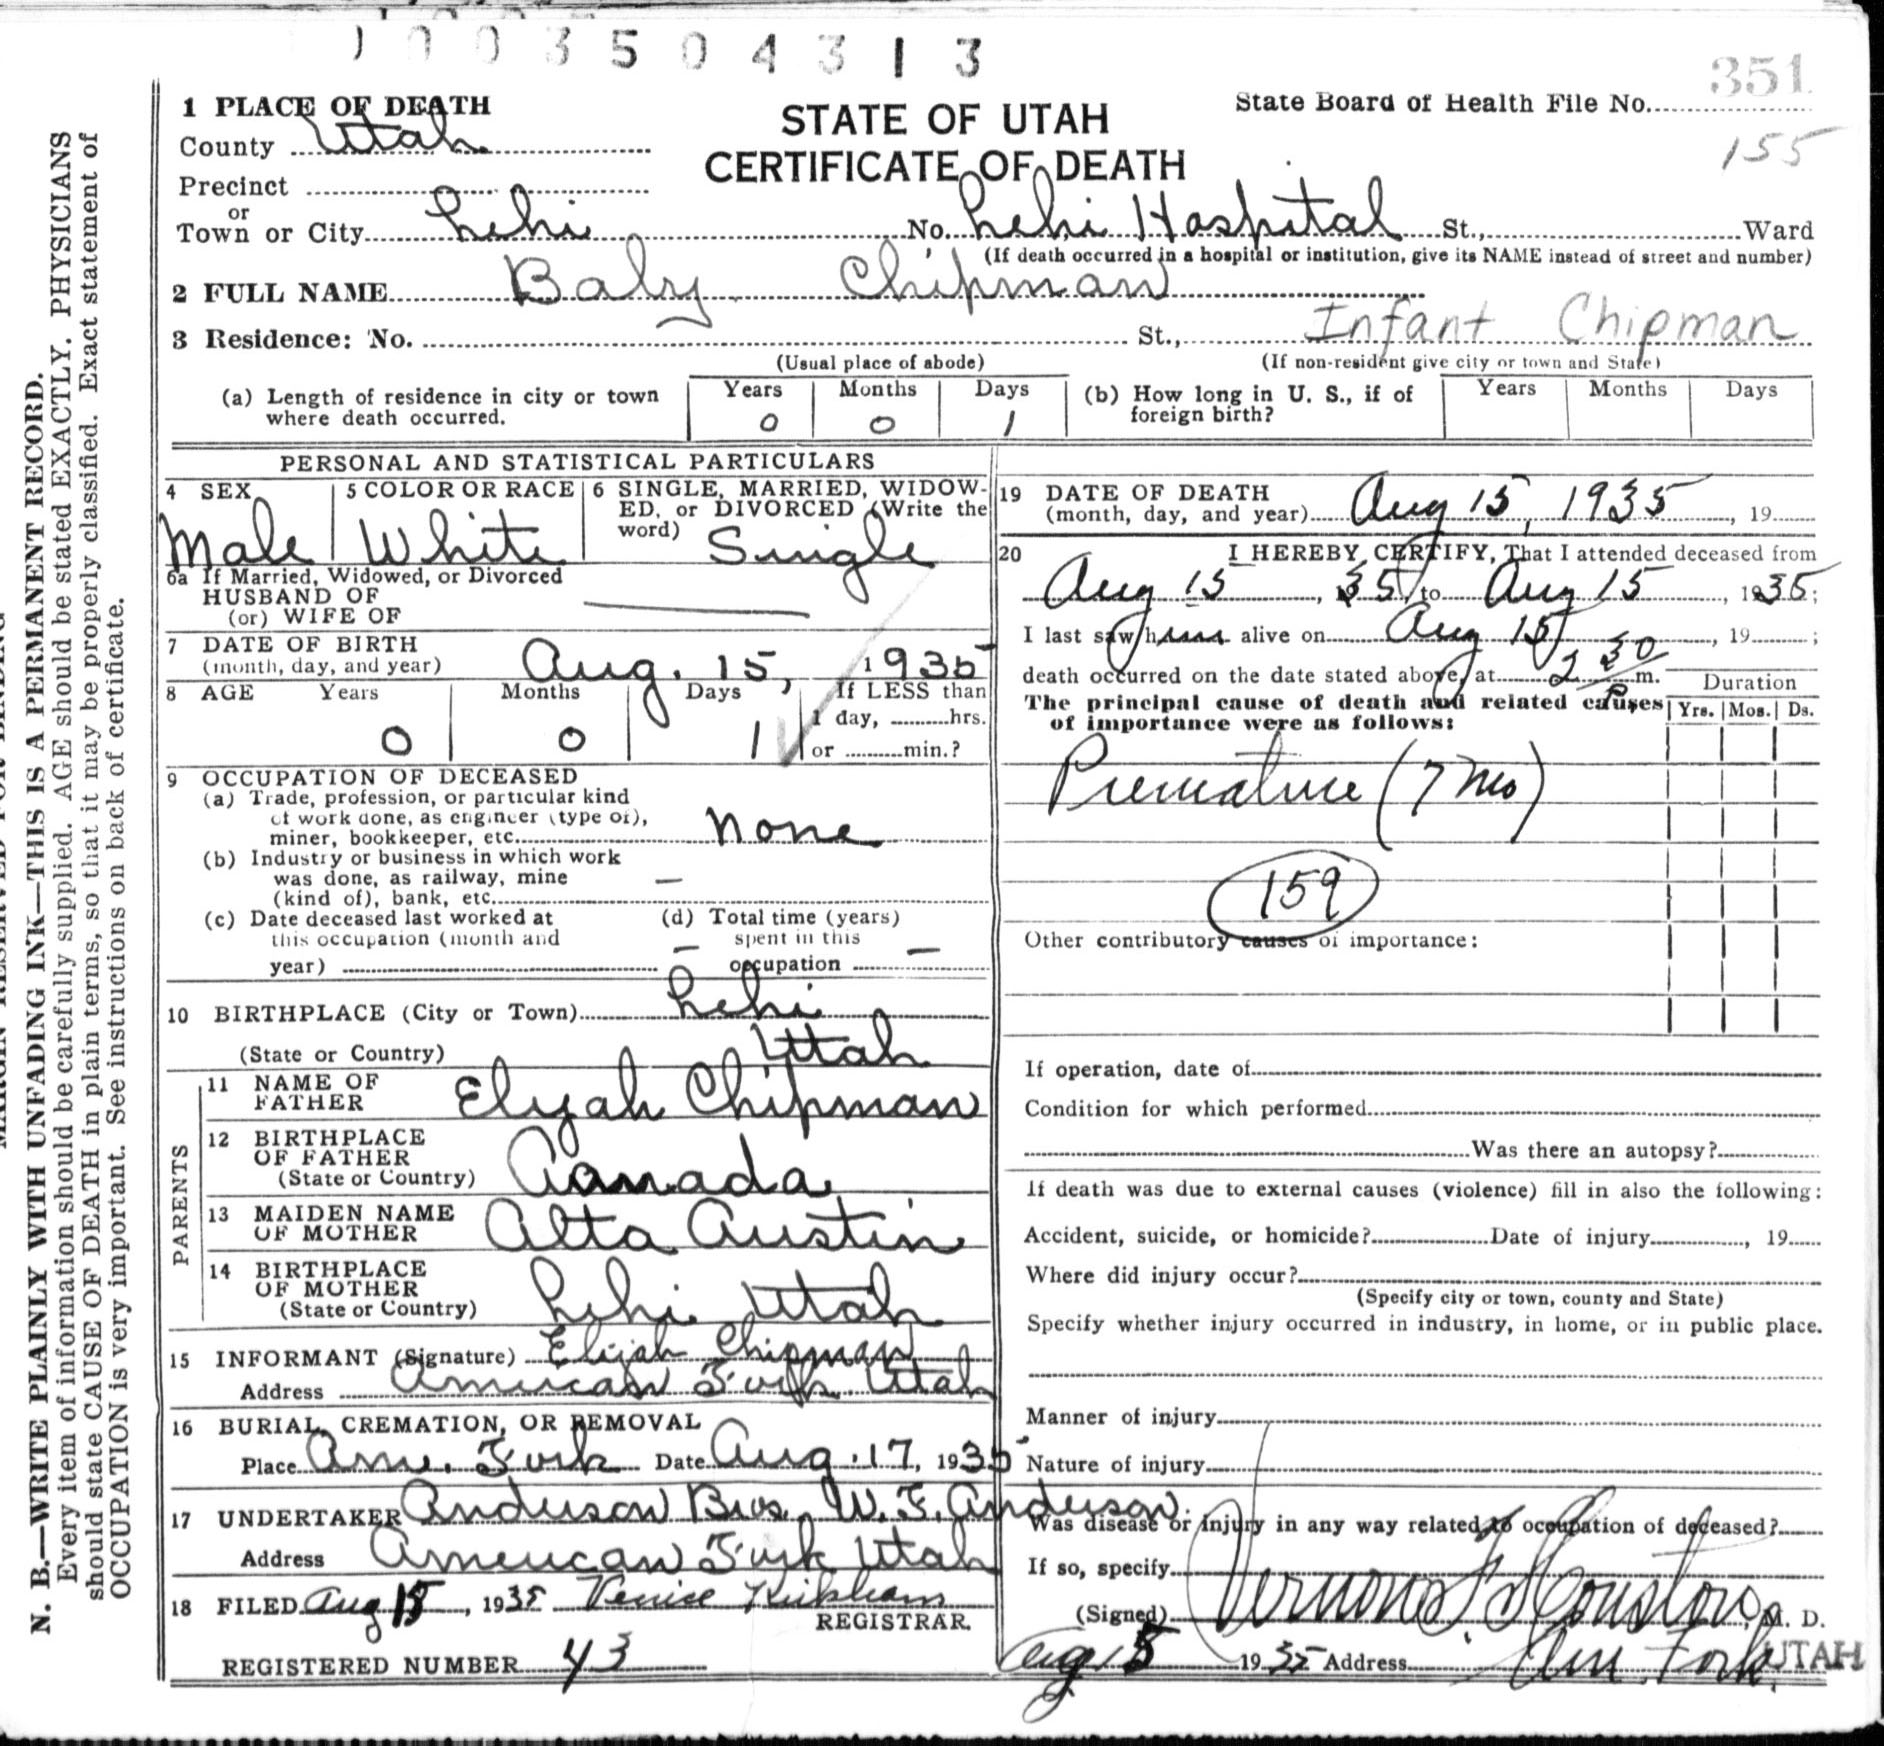 1 0 0 3 5 0 4 3 1 3
351
155
State Board of Health File No.
STATE OF UTAH
CERTIFICATE OF DEATH
1 PLACE OF DEATH
County Utah
Precinct
or
Town or City Lehi No. Lehi Hospital St., Ward
(If death occurred in a hospital or institution, give its NAME instead of street and number)
2 FULL NAME Baby Chipman
Infant Chipman
3 Residence: No. St.,
(Usual place of abode) (If non-resident give city or town and State)
(a) Length of residence in city or town where death occurred. Years 0 Months 0 Days 1
(b) How long in U. S., if of foreign birth? Years Months Days
PERSONAL AND STATISTICAL PARTICULARS
4 SEX Male
5 COLOR OR RACE White
6 SINGLE, MARRIED, WIDOW-
ED, or DIVORCED (Write the
word) Single
6a If Married, Widowed, or Divorced
HUSBAND OF
(or) WIFE OF
7 DATE OF BIRTH
(month, day, and year) Aug. 15, 1935
8 AGE Years Months Days If LESS than
1 day, hrs.
0 0 1 or min.?
9 OCCUPATION OF DECEASED
(a) Trade, profession, or particular kind
of work done, as engineer (type of),
miner, bookkeeper, etc. None
(b) Industry or business in which work
was done, as railway, mine
(kind of), bank, etc. —
(c) Date deceased last worked at
this occupation (month and
year) —
(d) Total time (years)
spent in this
occupation —
10 BIRTHPLACE (City or Town) Lehi
(State or Country) Utah
PARENTS
11 NAME OF
FATHER Elijah Chipman
12 BIRTHPLACE
OF FATHER
(State or Country) Canada
13 MAIDEN NAME
OF MOTHER Alta Austin
14 BIRTHPLACE
OF MOTHER
(State or Country) Lehi Utah
15 INFORMANT (Signature) Elijah Chipman
Address American Fork Utah
16 BURIAL, CREMATION, OR REMOVAL
Place Am. Fork Date Aug. 17, 1935
17 UNDERTAKER Anderson Bros. W. F. Anderson
Address American Fork Utah
18 FILED Aug 15, 1935 Venice Kirkham
REGISTRAR.
REGISTERED NUMBER 43
19 DATE OF DEATH
(month, day, and year) Aug 15, 1935, 19
20 I HEREBY CERTIFY, That I attended deceased from
Aug 15, 35, to Aug 15, 1935;
I last saw him alive on Aug 15, 19;
death occurred on the date stated above, at 2 30 P m.
The principal cause of death and related causes
of importance were as follows:
Duration
Yrs. Mos. Ds.
Premature (7 mo)
159
Other contributory causes of importance:
If operation, date of
Condition for which performed
Was there an autopsy?
If death was due to external causes (violence) fill in also the following:
Accident, suicide, or homicide? Date of injury, 19
Where did injury occur?
(Specify city or town, county and State)
Specify whether injury occurred in industry, in home, or in public place.
Manner of injury
Nature of injury
Was disease or injury in any way related to occupation of deceased?
If so, specify
(Signed) Vernon F Houston, M. D.
Aug 15 1935 Address Am. Fork, UTAH
N. B.—WRITE PLAINLY WITH UNFADING INK—THIS IS A PERMANENT RECORD.
Every item of information should be carefully supplied. AGE should be stated EXACTLY. PHYSICIANS
should state CAUSE OF DEATH in plain terms, so that it may be properly classified. Exact statement of
OCCUPATION is very important. See instructions on back of certificate.